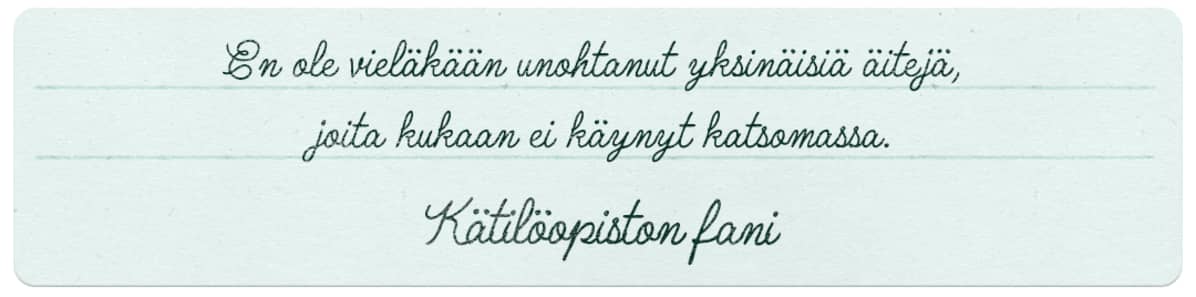 En ole vieläkään unohtanut yksinäisiä äitejä,
joita kukaan ei käynyt katsomassa.
Kätilöopiston fani